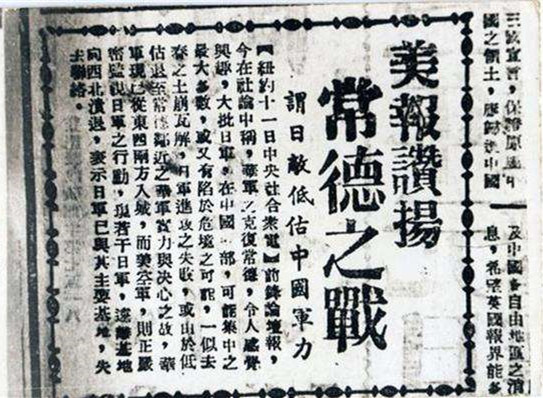 三國宣言，保證原屬中
國之領土，應歸還中國
及中國各自由地區之消
息，希望英國報界能多
美報讚揚
常德之戰
謂日敵低估中國軍力
【紐約十一日中央社合衆電】前鋒論壇報，
今在社論中稱，華軍之克復常德，令人感覺
興趣，大批日軍，在中國一部，可能集中之
最大多數，或又有陷於危境之可能，一似去
春之土崩瓦解，日軍進攻之失敗，或由於低
估退至常德鄰近之華軍實力與决心之故，華
軍現已從東西兩方入城，而美空軍，則正嚴
密監視日軍之行動，現若干日軍，遠離基地
向西北潰退，表示日軍已與其主要基地，失
去聯絡。